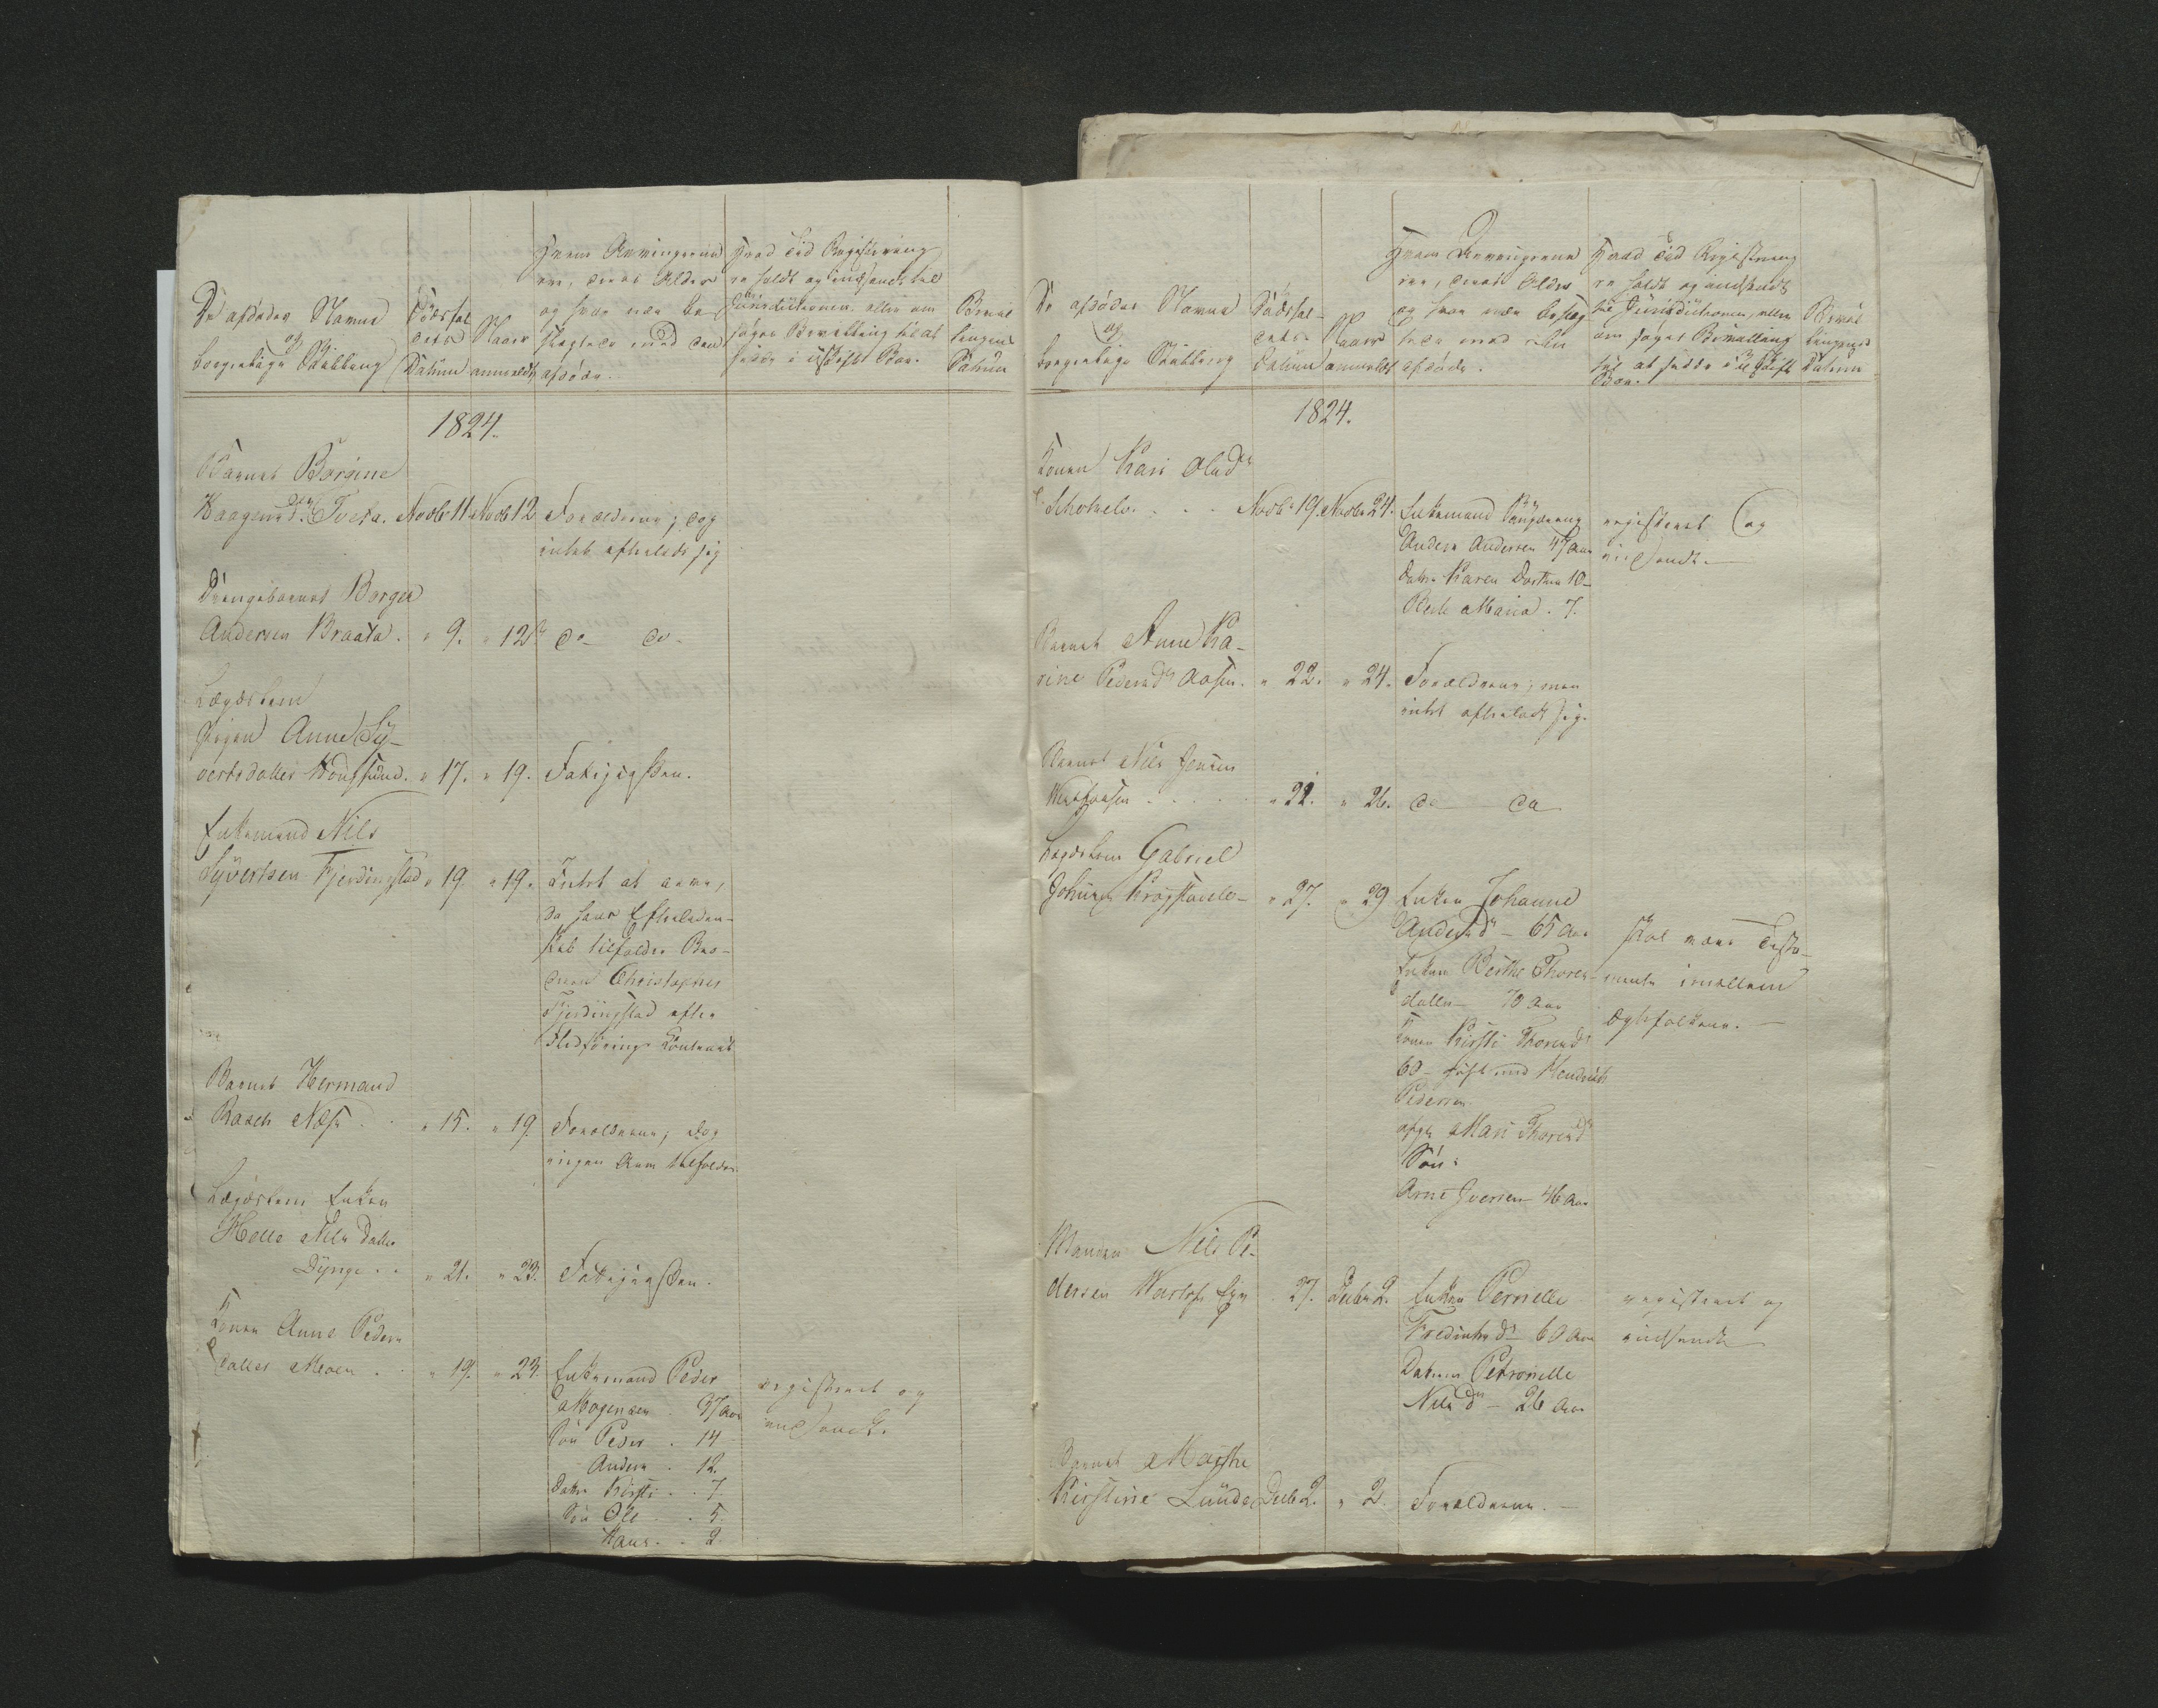 De afdödes Navne
og
borgerlige Stilling
Dödsfal
dets
Datum
Naar
anmeldt
Hvem Arvingerne
ere, deres Alder
og hvor nær be
slægtede med den
afdöde.
Hvad Tid Registrering
er holdt og indsendt til
Jurisdictionen eller om
søges Bevilling til at
sidde i uskiftet Boe.
Bevil
lingens
Datum
1824.
Barnet Borgine
Haagensdr Tveta. Novbr 11 Novbr 12 Forældrene; dog
intet efterladt sig
Drengebarnet Borger
Andersen Braata. " 9. " 12 do do
Lægdslem
Pigen Anne Sy-
vertsdatter " 17. " 19. Fattigkassen.
Enkemand Nils
Syvertsen Fjerdingstad " 19. " 19. Intet at arve,
da hans Efterladen-
skab tilfalder Bro-
deren Christopher
Fjerdingstad efter
Contract
Barnet Hermand
Rasch Næss . . " 15. " 19. Forældrene; dog
ingen Arv tilfalder
Lægdslem Enken
Helle Nilsdatter
Dynge . . " 21. " 23. Fattigkassen.
Konen Anne Peders
datter Moen . . " 19. " 23. Enkemand Peder
Mogensen . 37 Aar
Sön Peder . 14
Anders . 12.
Datter Kirsti . . 7
Sön Ole . . 5.
Hans . . 2.
registreret og
indsendt.
De afdödes Navne
og
borgerlige Stilling
Dödsfal-
dets
Datum
Naar
anmeldt
Hvem Arvingerne
ere, deres Alder
og hvor nær beslæg-
tede med den
afdöde.
Hvad Tid Registrering
er holdt og indsendt
til Jurisdictionen, eller
om søges Bevilling
til at sidde i uskift
Boe.
Bevil
lingens
Datum
1824.
Konen Kari Olsdr
. . . Novbr 19. Novbr 24. Enkemand
Anders Andersen 47 Aar
Datter Karen Dorthea 10-
Berte Maria . 7.
registreret og
indsendt.
Barnet Anne Ka-
rine Pedersdr Aasen. " 22. " 24. Forældrene; men
intet efterladt sig.
Barnet Nils Jensen
. . . . " 22. " 26. do do
Lægdslem Gabriel
" 27. " 29 Enken Johanne
Andersdr - 65 Aar
Enken Berthe Thores-
datter - 70 Aar
Konen Kirsti Thoresdr
60 - gift med Hendrich
Pedersen
afgl. Mari Thoresdr
Sön:
Arne Iversen 46 Aar
skal være Testa-
mente imellem
Ægtefolkene.
Manden Nils Pe-
dersen 27. Decbr 2. Enken Pernille
Fredrichsdr 60 Aar
Datteren Petronille
Nilsdr - 26 Aar
registreret og
indsendt
Barnet Marthe
Kirstine Lunde Decbr 2. " 2. Forældrene.